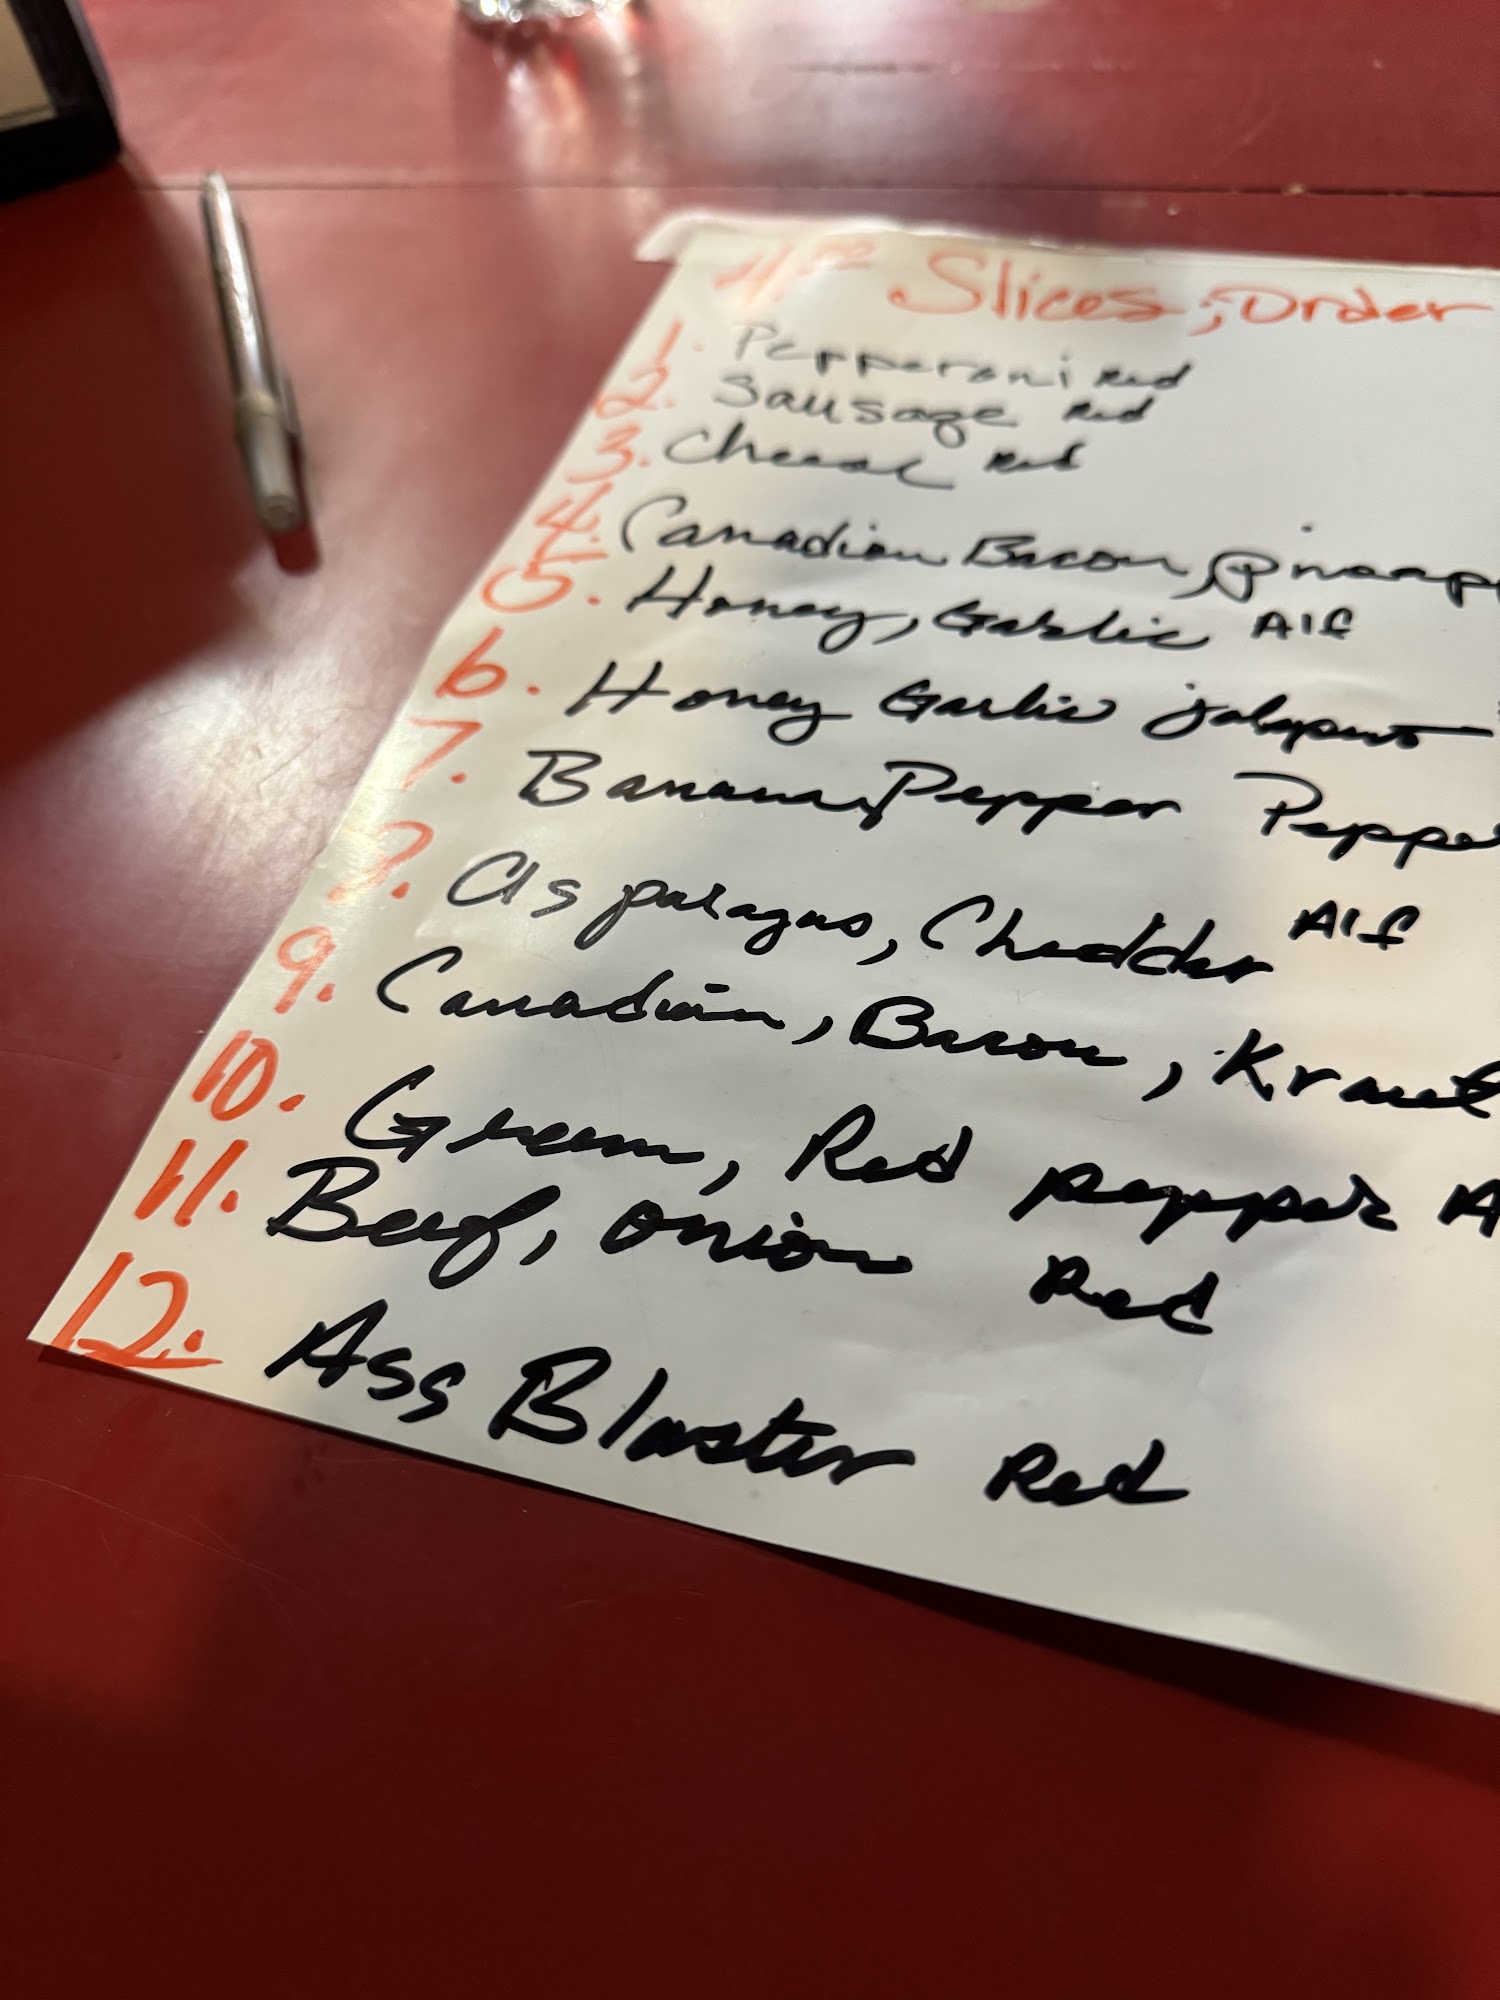 4.00 Slices; Order
1. Pepperoni Red
2. Sausage Red
3. Cheese Red
4. Canadian Bacon,
5. Honey, Garlic Alf
6. Honey Garlic jalapeno
7. Banana, Pepper Peppe
8. Asparagus, Cheddar Alf
9. Canadian, Bacon, Kraut
10. Green, Red pepper A
11. Beef, onion Red
12. Ass Blaster Red